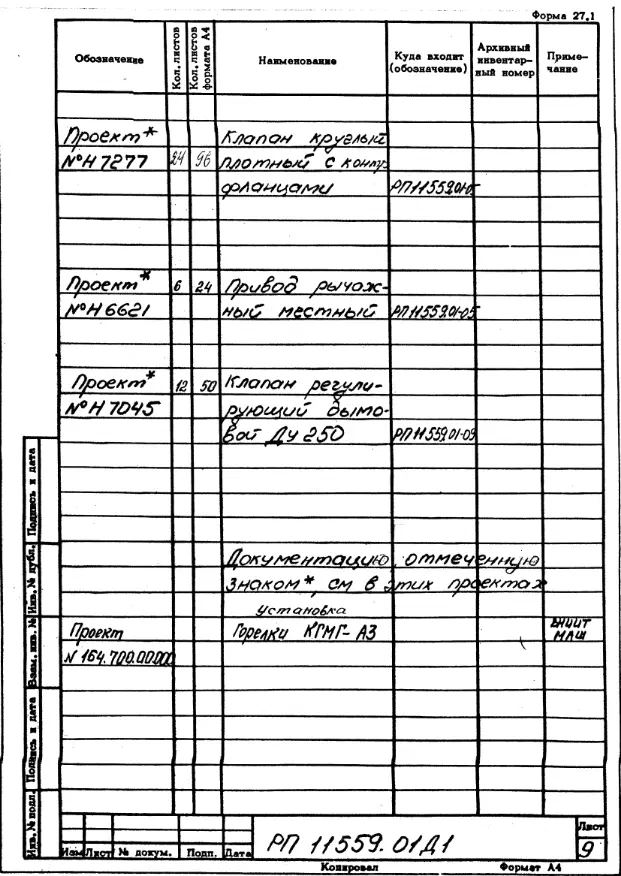 Форма 27.1
Обозначение
Кол. листов
Кол. листов формата А4
Наименование
Куда входит (обозначение)
Архивный инвентарный номер
Примечание
Проект* Клапан круглый
№ Н 7277 24 96 плотный с контр
фланцами РП11559.01-05
Проект* 6 24 Привод рычаж-
№ Н 6621 ный местный РП11559.01-05
Проект* 12 50 Клапан регули-
№ Н 7045 рующий дымо-
вой Ду 250 РП11559.01-09
Документацию, отмеченную
знаком*, см в этих проектах
установка
Проект Горелки КГМГ-А3 ВНИИТ
МАШ
N 164.700.00.000
Инв. № подл. Подпись и дата Взам. инв. № Инв. № дубл. Подпись и дата
Изм Лист № докум. Подп. Дата
РП 11559.01Д1
Лист
9
Копировал Формат А4